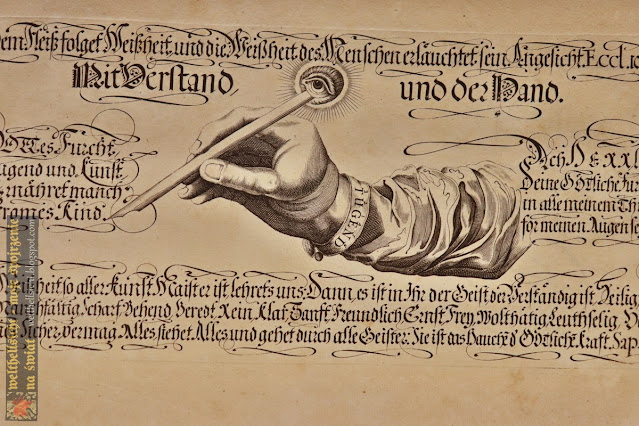 dem Fleiß folget Weißheit, und die Weißheit des Menschen erläuchtet sein Angesicht. Eccl. 10
Mit Verstand und der Hand.
GOTTes Furcht
Tugend und Kunst
nähret manch
fromes Kind.
TUGEND
Ach HE
Deine Göttliche
in alle meinem
för meinen Augen
so aller Kunst Maister ist lehrets uns. Dann, es ist in Ihr der Geist der Verständig ist, Heilig
Manchfältig Scharf Behend, Beredt Rein Klar Sanfft Freundlich Ernst Frey, Wolthätig Leuthselig,
Sicher, vermag Alles siehet Alles und gehet durch alle Geister: Sie ist das Hauche d' Göttliche Kraft. Sap.